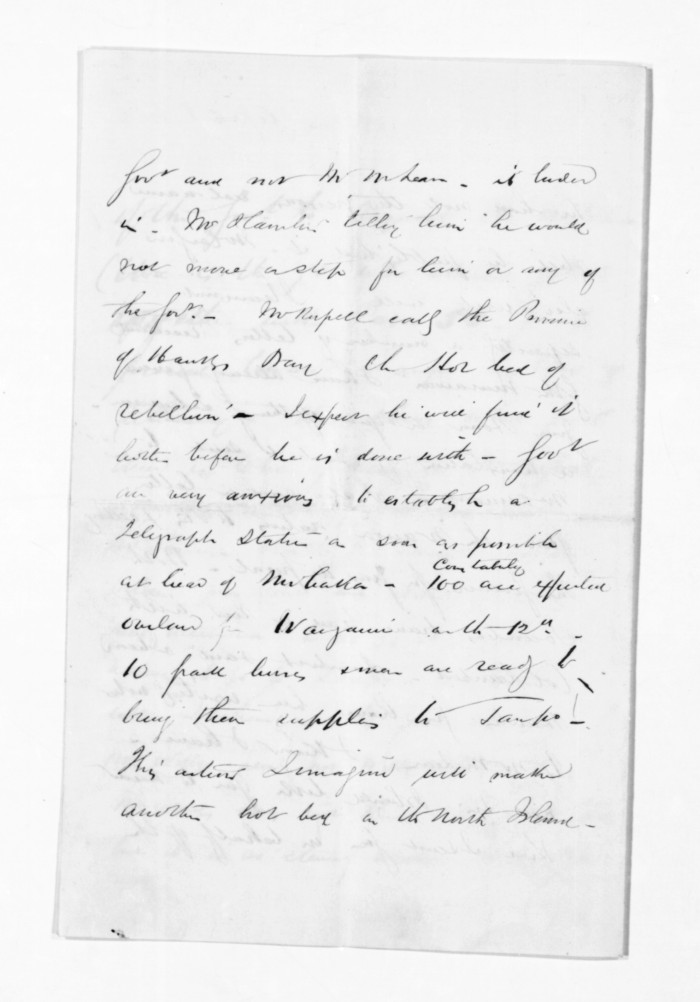 Govt and not Mr McLean - it
in - Mr Hamlin telling him he would
not move a step for him or any of
the Govt. - Mr Russell calls the Province
of Hawkes Bay the Hot bed of
rebellion - I expect he will find it
hotter before he is done with - Govt
are very anxious to establish a
Telegraph Station as soon as possible
at head of Mohaka -
Constabulary
100 are expected
overland from Wanganui on the 12th -
10 pack horses & men are ready to
bring them supplies to Taupo -
This action I imagine will make
another hot bed in the North Island -